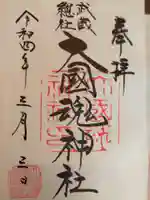 奉拝
武蔵
総社
大國魂神社
令和四年三月三日